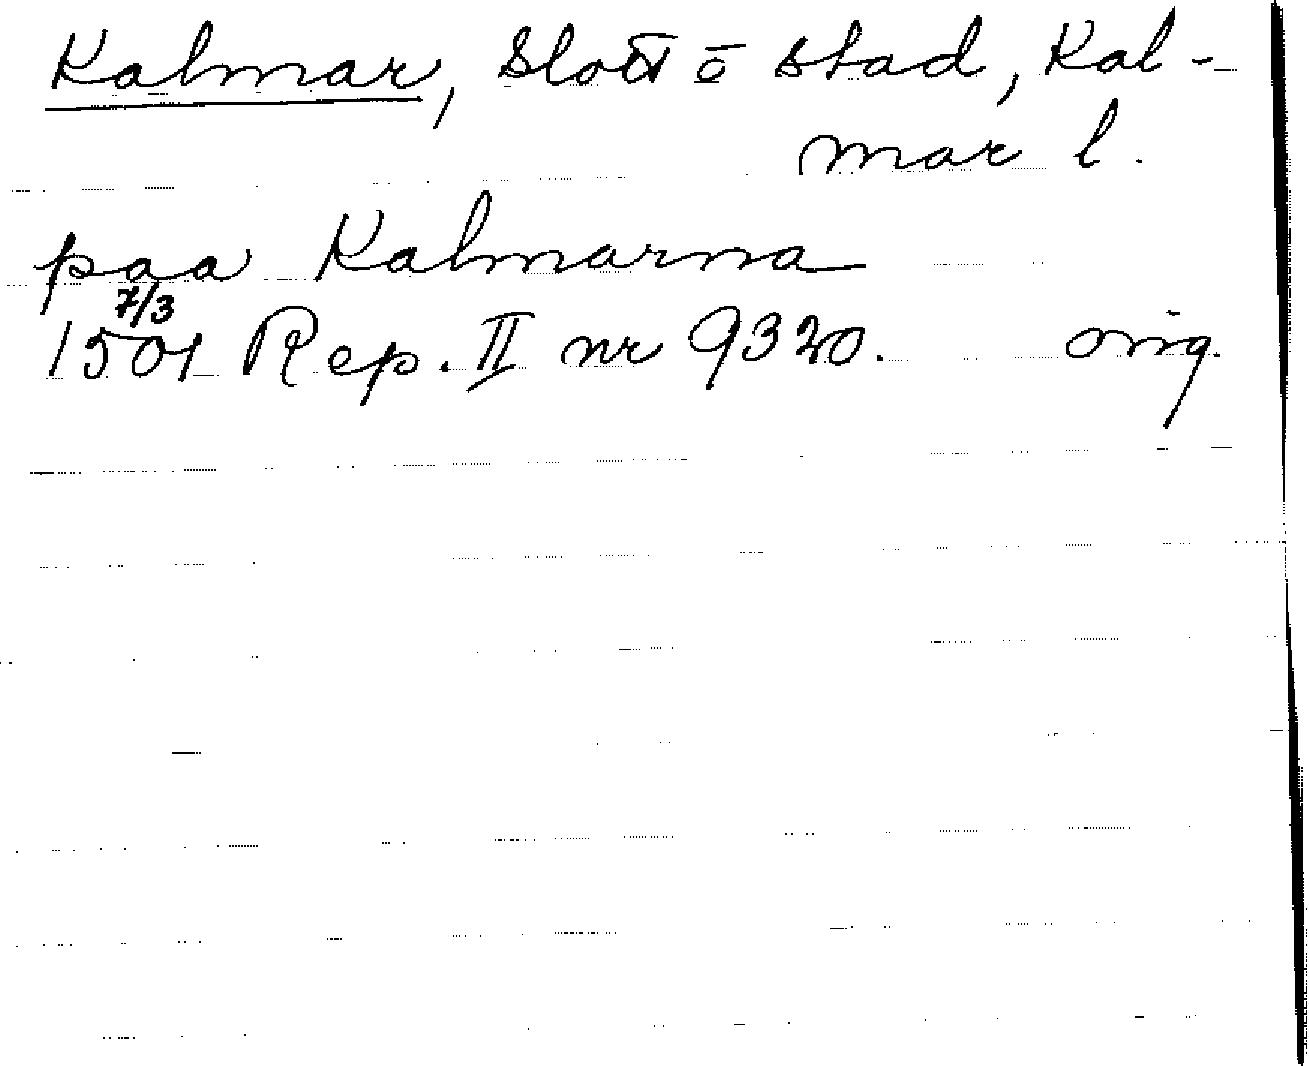 Kalmar, Slott ō stad, Kal-
mar l.
paa Kalmarna
7/3
1501 Rep. II nr 9320. orig.